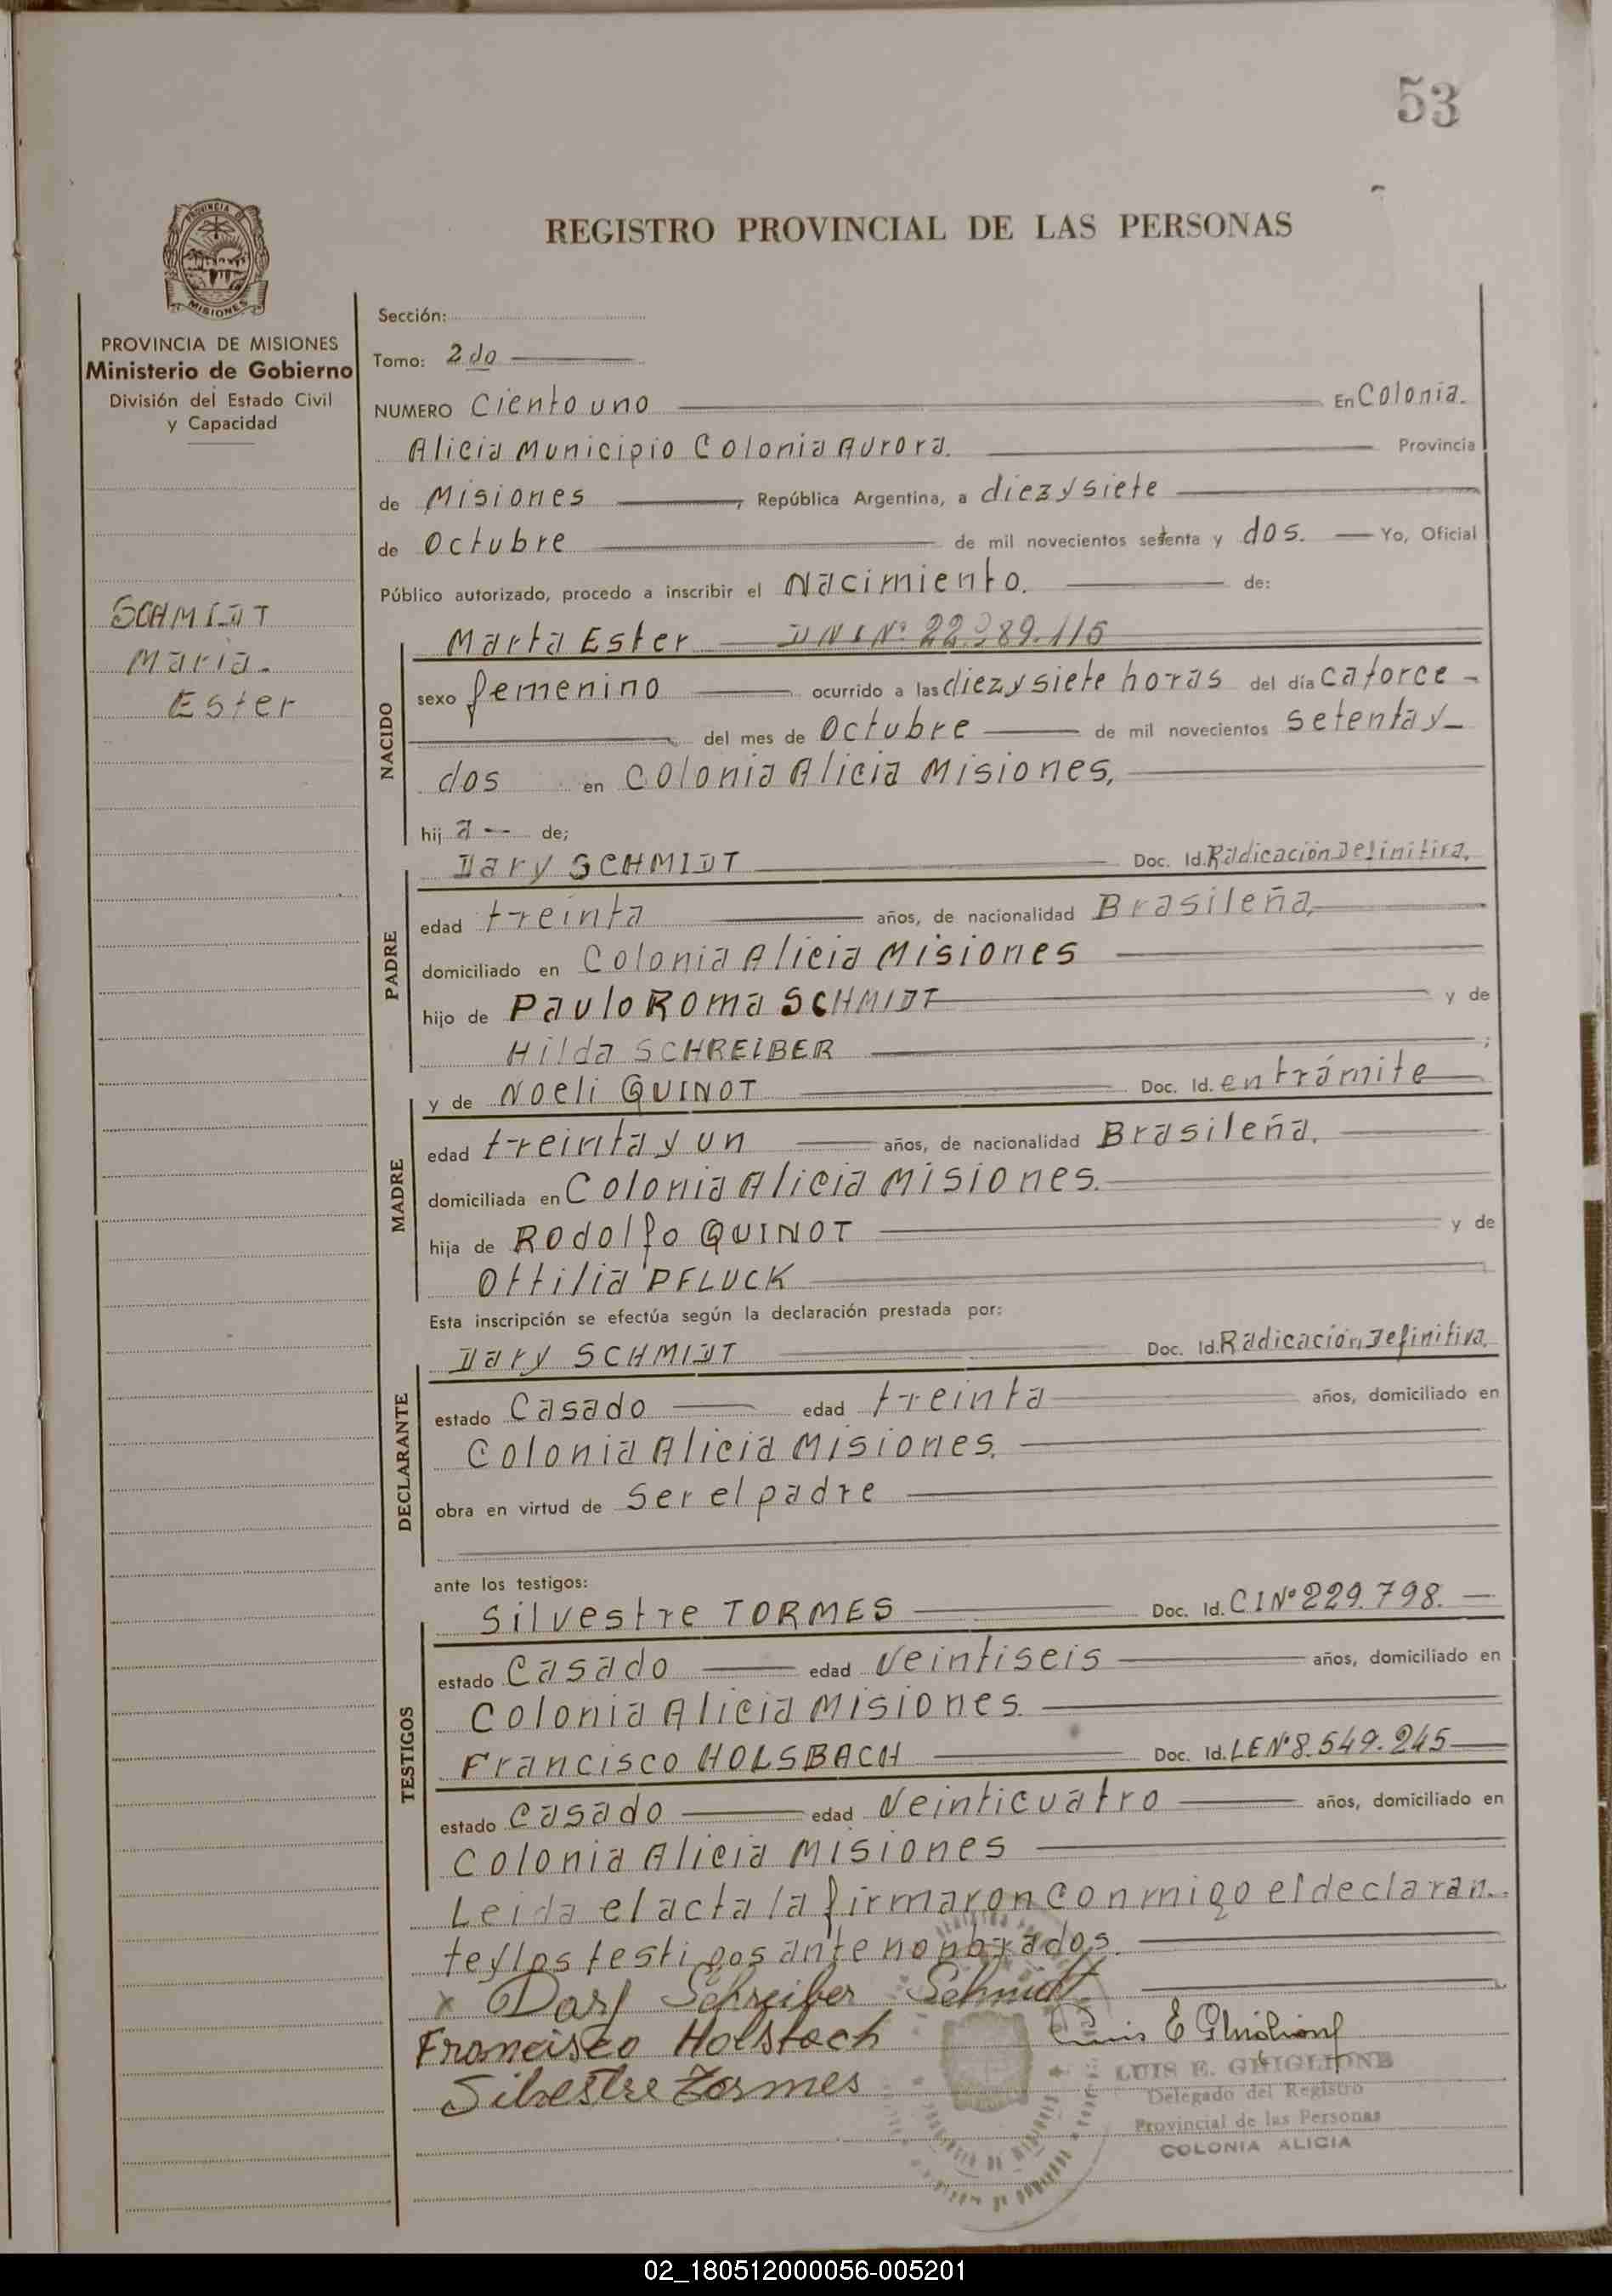 53
REGISTRO PROVINCIAL DE LAS PERSONAS
PROVINCIA DE
MISIONES
PROVINCIA DE MISIONES
Ministerio de Gobierno
División del Estado Civil
y Capacidad
SCHMIDT
Maria.
Ester
Sección:
Tomo: 2do
NUMERO Ciento uno En Colonia.
Alicia Municipio Colonia Aurora. Provincia
de Misiones, República Argentina, a diez y siete
de Octubre de mil novecientos setenta y dos. Yo, Oficial
Público autorizado, procedo a inscribir el Nacimiento. de:
NACIDO
Marta Ester DNI Nº 22.989.116
sexo femenino ocurrido a las diez y siete horas del día catorce
del mes de Octubre de mil novecientos setenta y
dos en Colonia Alicia Misiones,
hij a de;
PADRE
Dary SCHMIDT Doc. Id. Radicación Definitiva.
edad treinta años, de nacionalidad Brasileña,
domiciliado en Colonia Alicia Misiones
hijo de Paulo Roma SCHMIDT y de
Hilda SCHREIBER ;
MADRE
y de Noeli QUINOT Doc. Id. en trámite
edad treinta y un años, de nacionalidad Brasileña.
domiciliada en Colonia Alicia Misiones.
hija de Rodolfo QUINOT y de
Ottilia PFLUCK
Esta inscripción se efectúa según la declaración prestada por:
DECLARANTE
Dary SCHMIDT Doc. Id. Radicación Definitiva.
estado Casado edad treinta años, domiciliado en
Colonia Alicia Misiones.
obra en virtud de Ser el padre
ante los testigos:
TESTIGOS
Silvestre TORMES Doc. Id. CI Nº 229.798.
estado Casado edad Veintiseis años, domiciliado en
Colonia Alicia Misiones.
Francisco HOLSBACH Doc. Id. LE Nº 8.549.245
estado Casado edad Veinticuatro años, domiciliado en
Colonia Alicia Misiones
Leida el acta la firmaron conmigo el declaran.
te y los testigos ante nonbrados.
x Dary Schreiber Schmidt
Francisco Holsbach
Luis E Ghiglione
Silvestre Tormes
LUIS E. GHIGLIONE
Delegado del Registro
Provincial de las Personas
COLONIA ALICIA
02_180512000056-005201